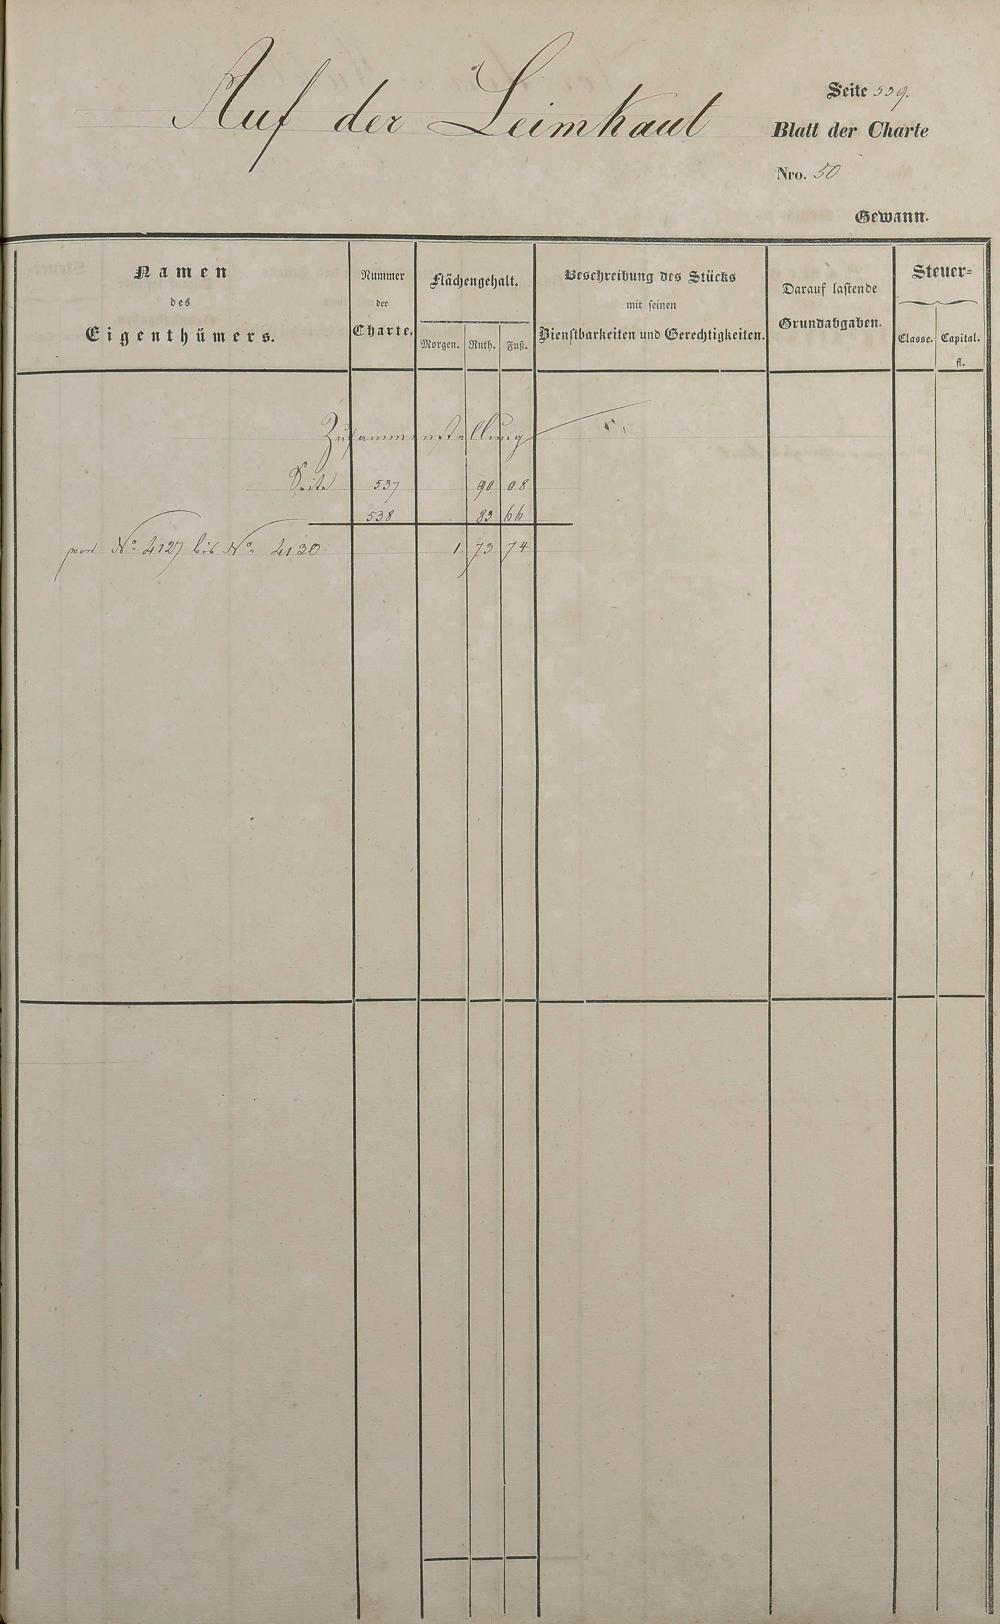 Auf der Leimkaut
Seite 539.
Blatt der Charte
Nro. 50
Gewann.
Namen
des
Eigenthümers.
Nummer
der
Charte.
Flächengehalt.
Morgen. Ruth. Fuß.
Beschreibung des Stücks
mit seinen
Dienstbarkeiten und Gerechtigkeiten.
Darauf lastende
Grundabgaben.
Steuer=
Classe. Capital.
fl.
Zusammenstellung
Seite 537 90 08
538 83 66
von No 4127 bis No 4130 1 73 74